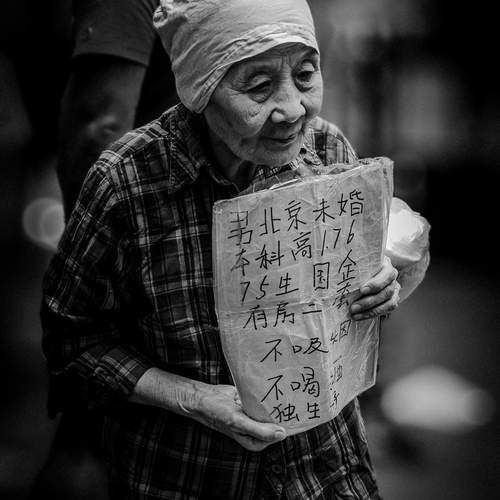 男北京未婚
本科高176
75生国企
有房二套
不吸烟
不喝
独生